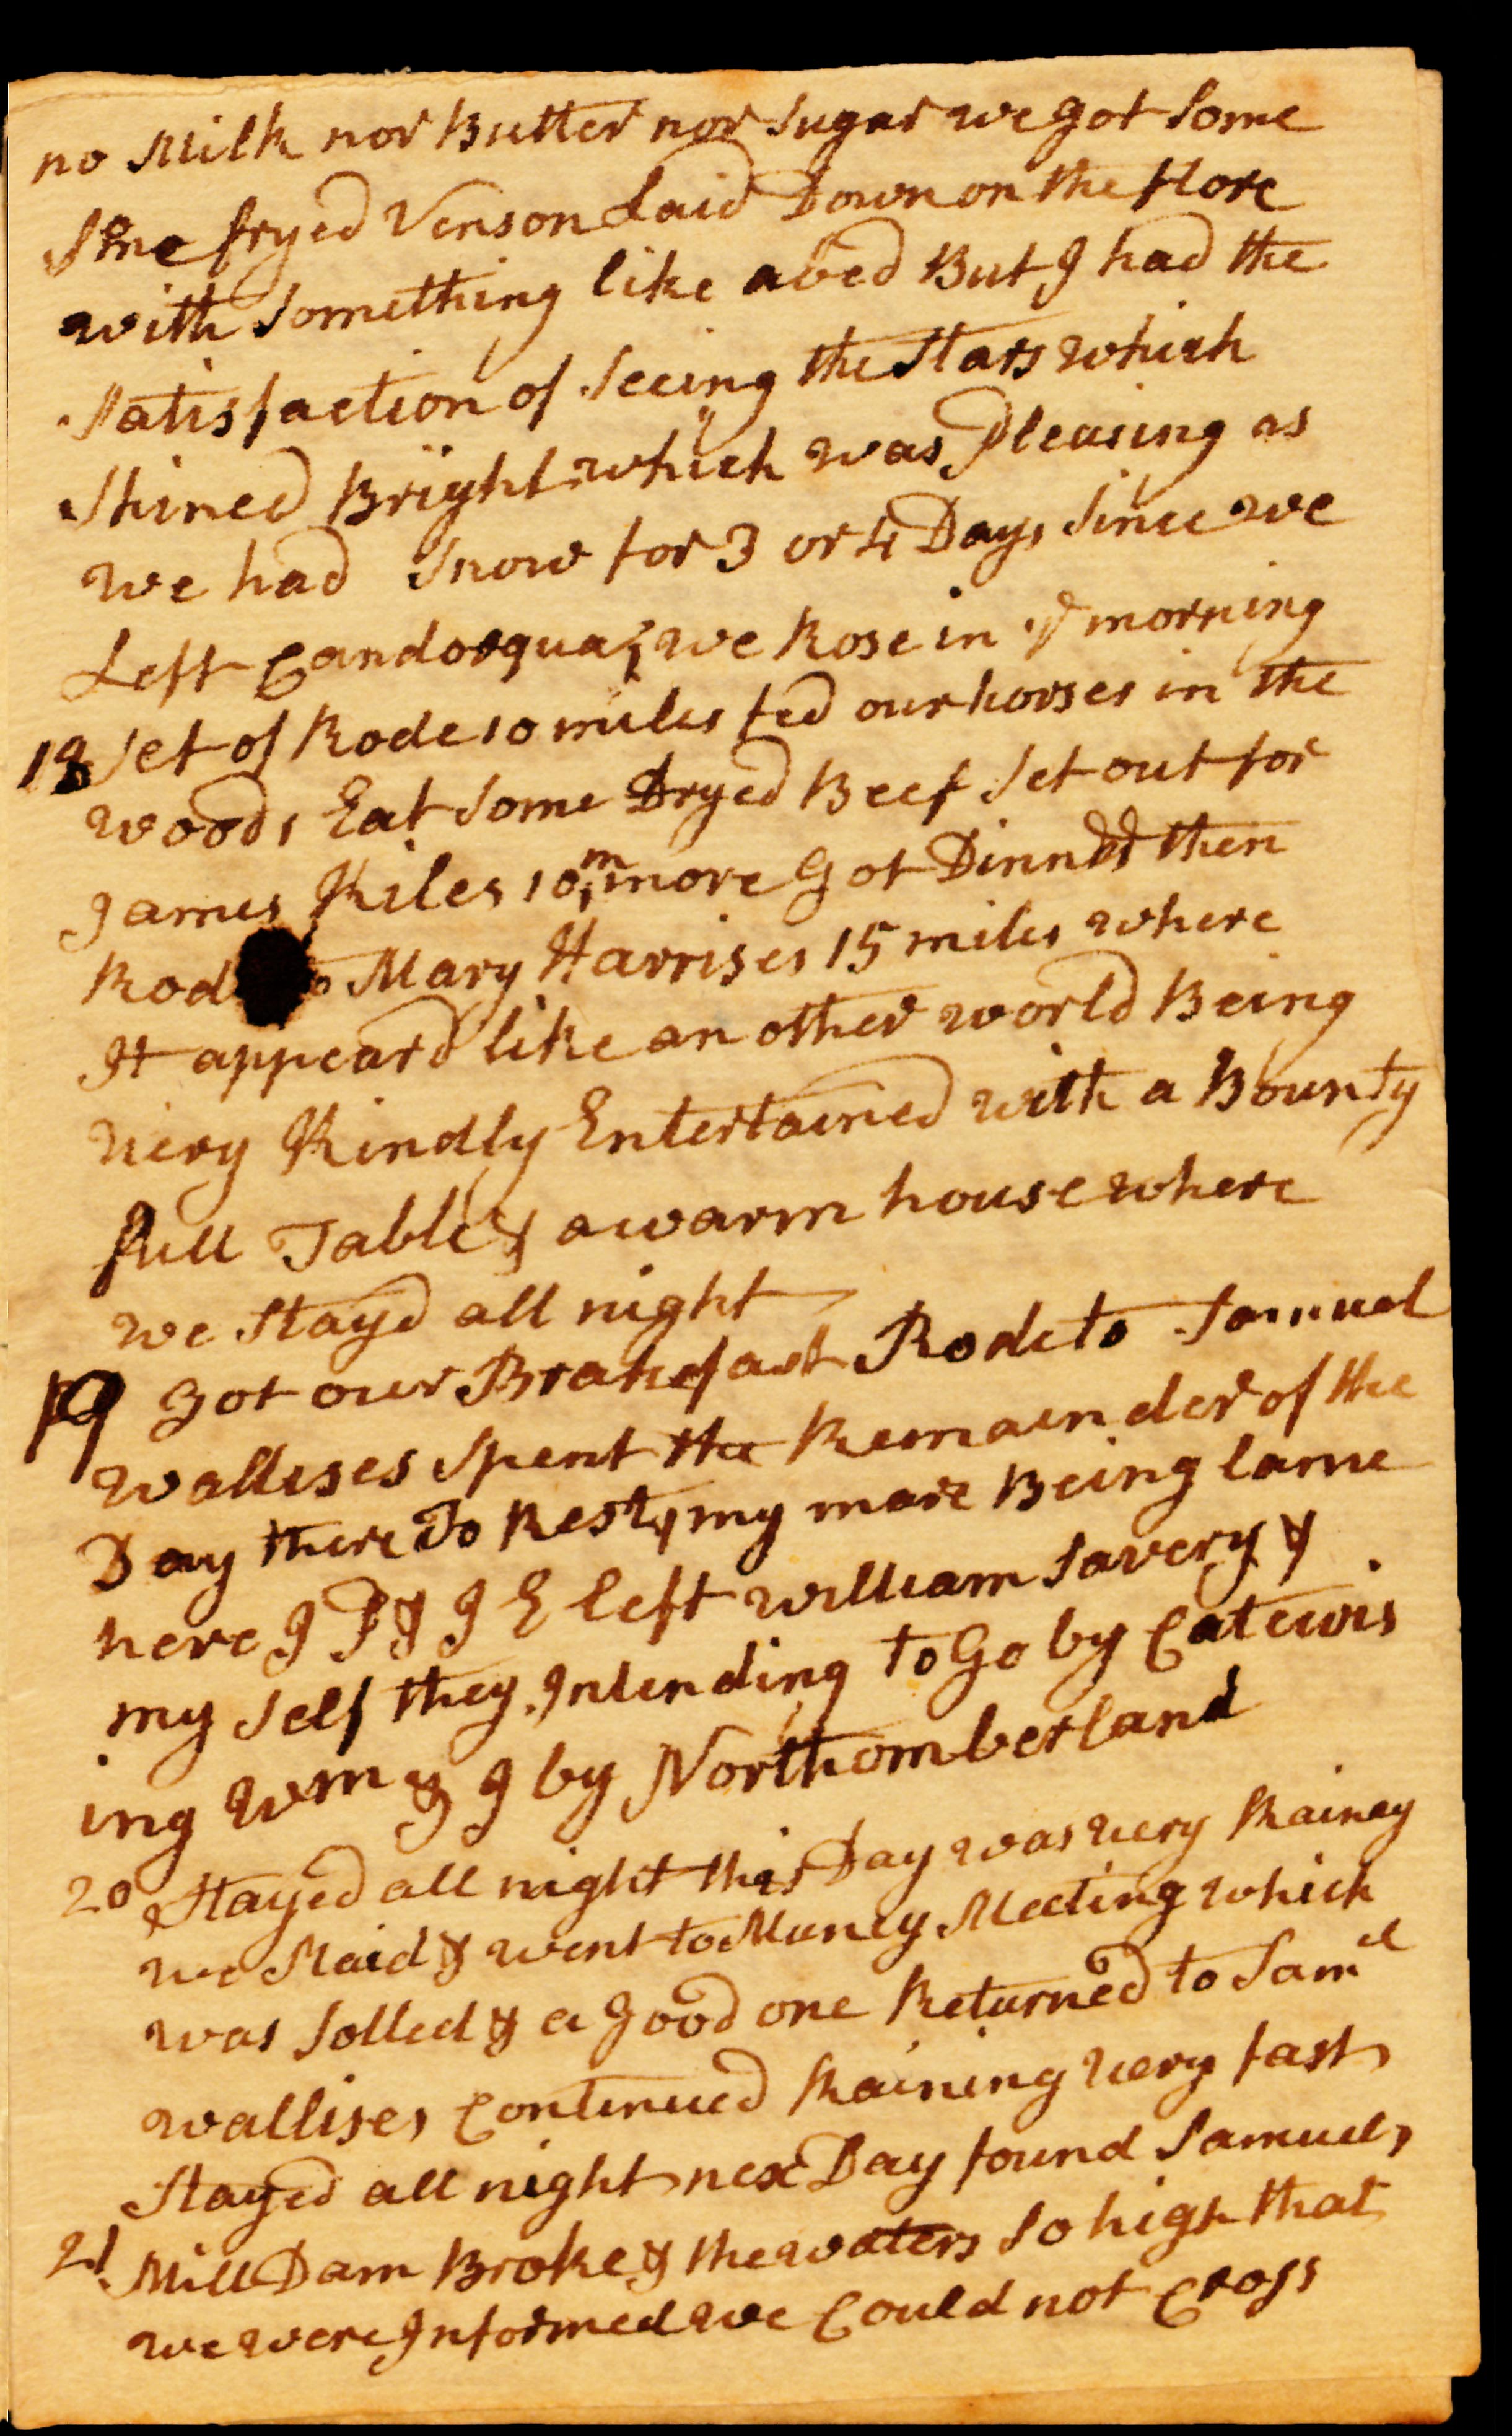 no Milk nor Butter nor Sugar we got Some
fryed Venson Laid Down on the flore
with Something like a bed But I had the
Satisfaction of Seeing the Stars which
Shined Bright which was Pleasing as
we had Snow for 3 or 4 Days Since we
Left Candorqua, we Rose in ye morning
18 Set of Rode 10 miles fed our horses in the
woods Eat Some Dryed Beef Set out for
James Kiles 10m more Got Dinner then
Rod o Mary Harrises 15 miles where
It appeard like an other world Being
very Kindly Entertained with a Bounty
full Table & a warm house where
we Stayd all night
19 Got our Brakefast Rode to Samuel
Wallises Spent the Remainder of the
Day there To Rest, my mare Being lame
here J P & J E left William Savery &
my Self they Intending to Go by Catewis
ing Wm & I by Northomberland
20 Stayed all night this Day was very Rainey
we Staid & went to Muncy Meeting which
was Solled & a good one Returned to Samll
Wallises Continued Raining very fast
Stayed all night nex Day found Samuels
21 Mill Dam Broke & the waters So high that
we were Informed we Could not Cross